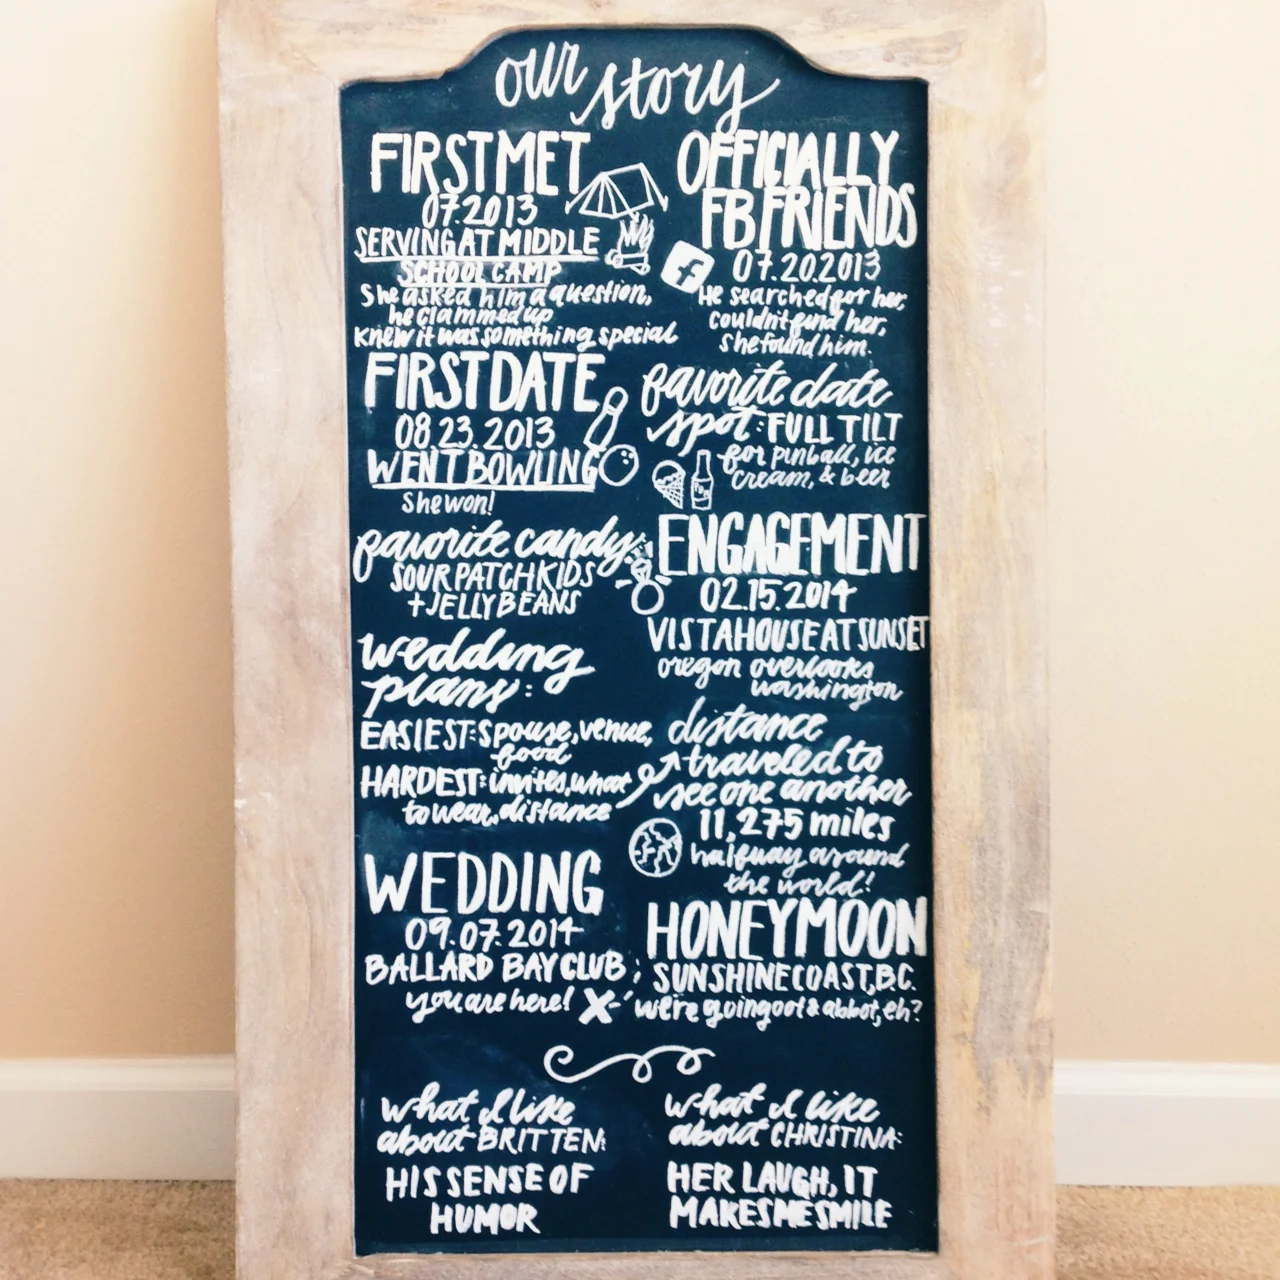 our story
FIRST MET
07.2013
SERVING AT MIDDLE
SCHOOL CAMP
She asked him a question,
he clammed up
knew it was something special
OFFICIALLY
FB FRIENDS
f
07.20.2013
He searched for her,
couldn't find her,
she found him.
FIRST DATE
08.23.2013
WENT BOWLING
She won!
favorite date
spot: FULL TILT
for pinball, ice
cream, & beer
favorite candy:
SOUR PATCH KIDS
+ JELLY BEANS
ENGAGEMENT
02.15.2014
VISTA HOUSE AT SUNSET
oregon overlooks
washington
wedding
plans:
EASIEST: spouse, venue,
food
HARDEST: invites, what
to wear, distance
distance
traveled to
see one another
11,275 miles
halfway around
the world!
WEDDING
09.07.2014
BALLARD BAY CLUB
you are here! X
HONEYMOON
SUNSHINE COAST, B.C.
we're going oot & aboot, eh?
what I like
about BRITTEN:
HIS SENSE OF
HUMOR
what I like
about CHRISTINA:
HER LAUGH, IT
MAKES ME SMILE